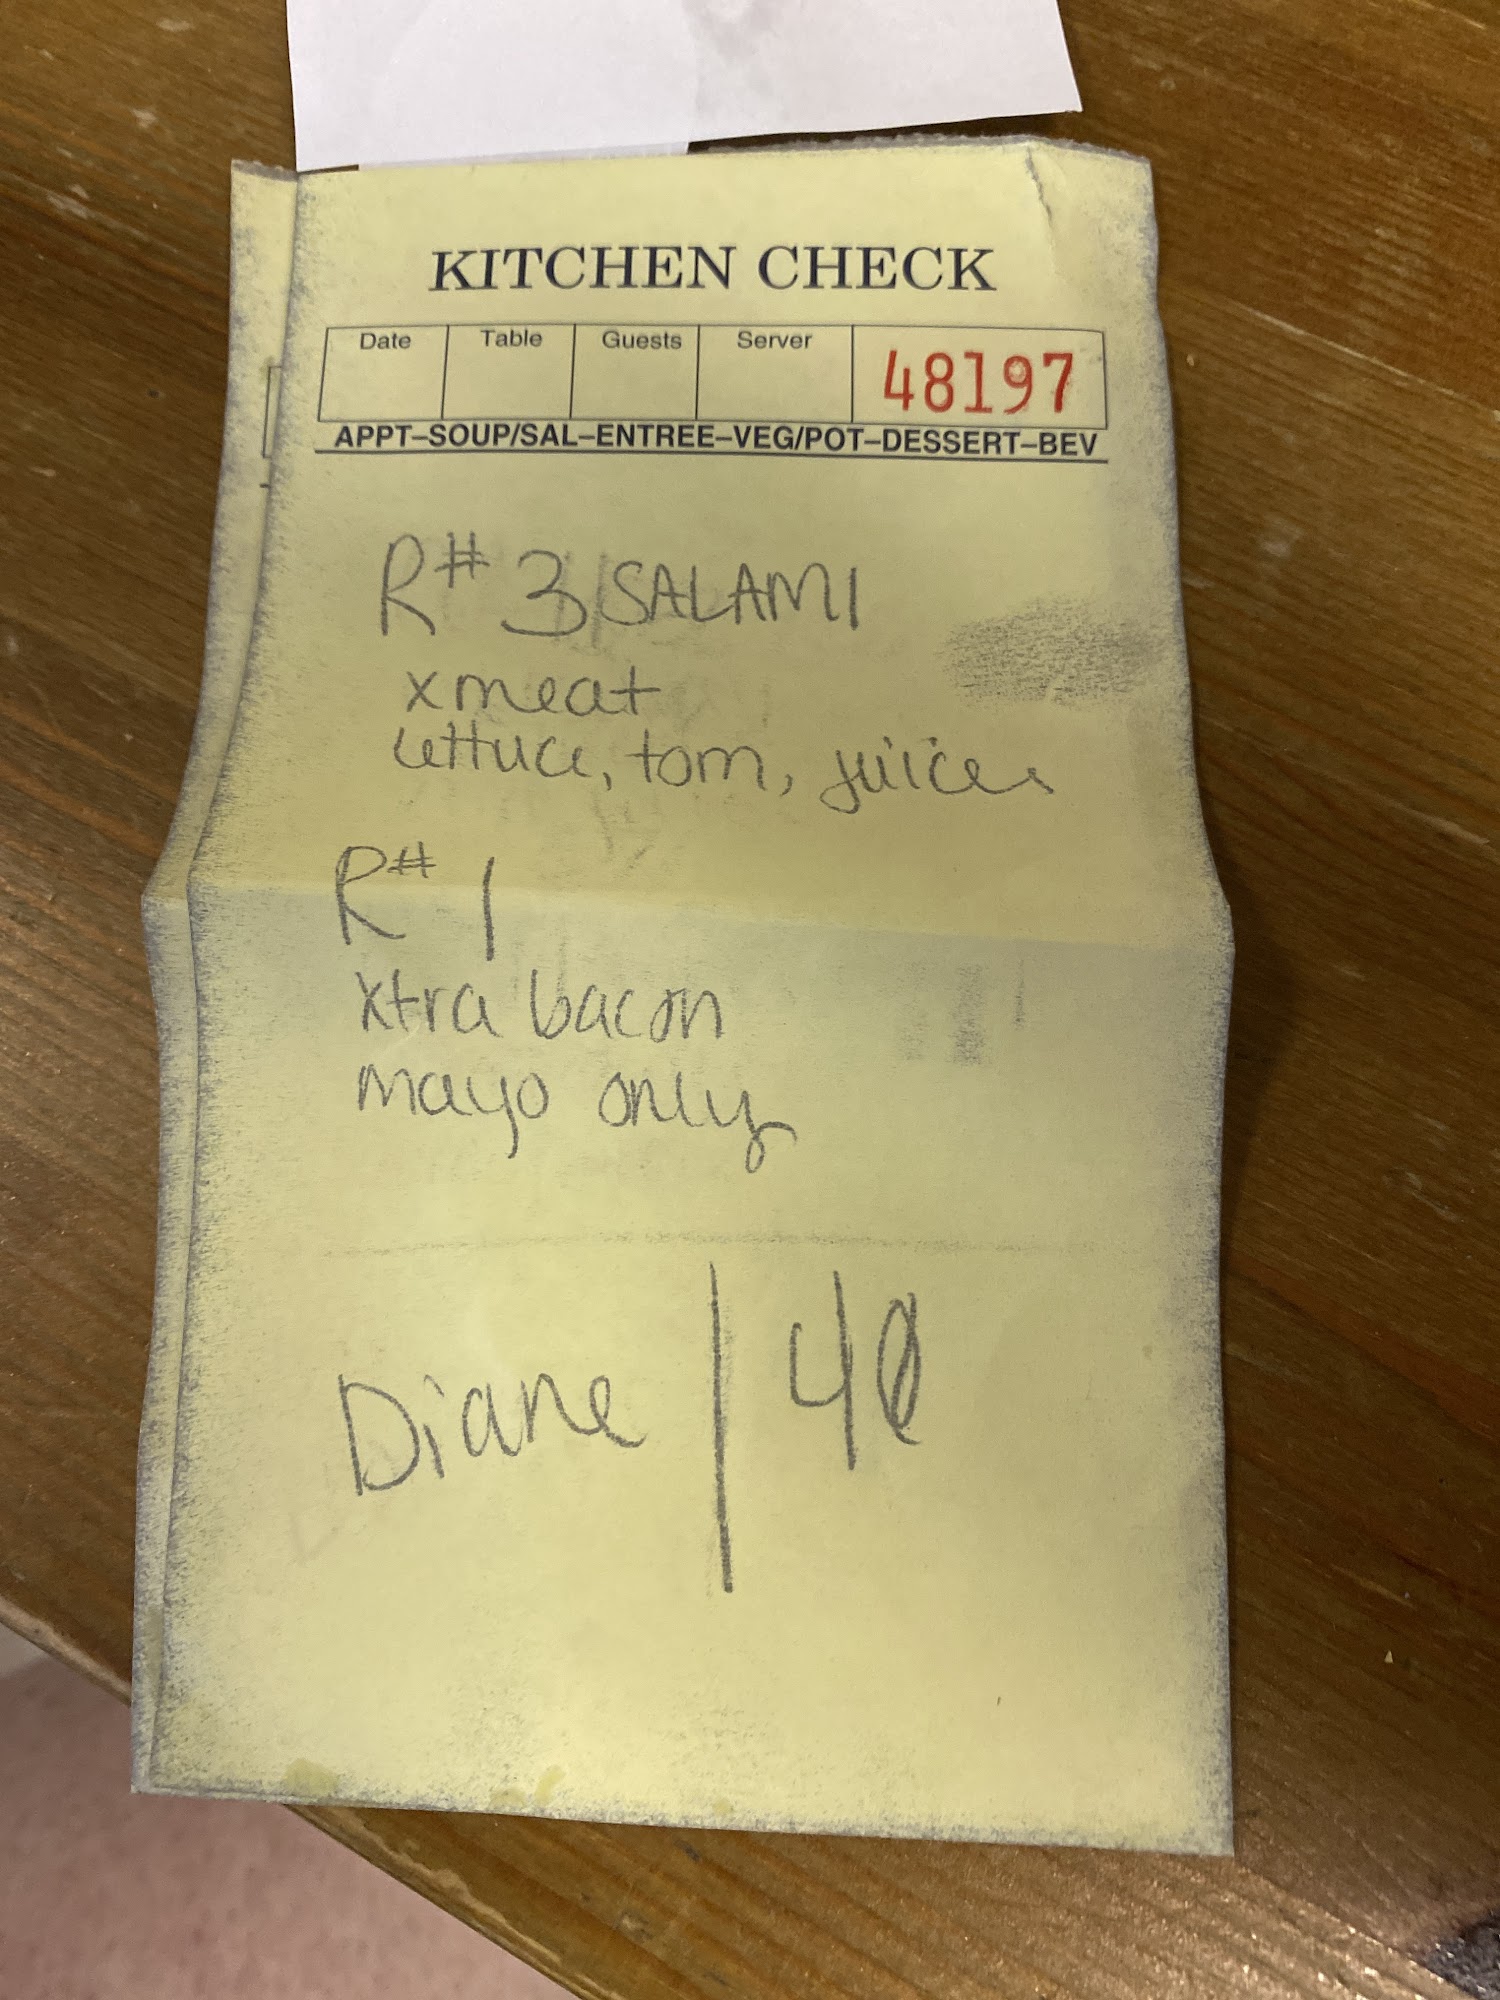 KITCHEN CHECK
Date Table Guests Server 48197
APPT–SOUP/SAL–ENTREE–VEG/POT–DESSERT–BEV
R# 3/SALAMI
x meat
lettuce, tom, juices
R# 1
xtra bacon
mayo only
Diane | 40